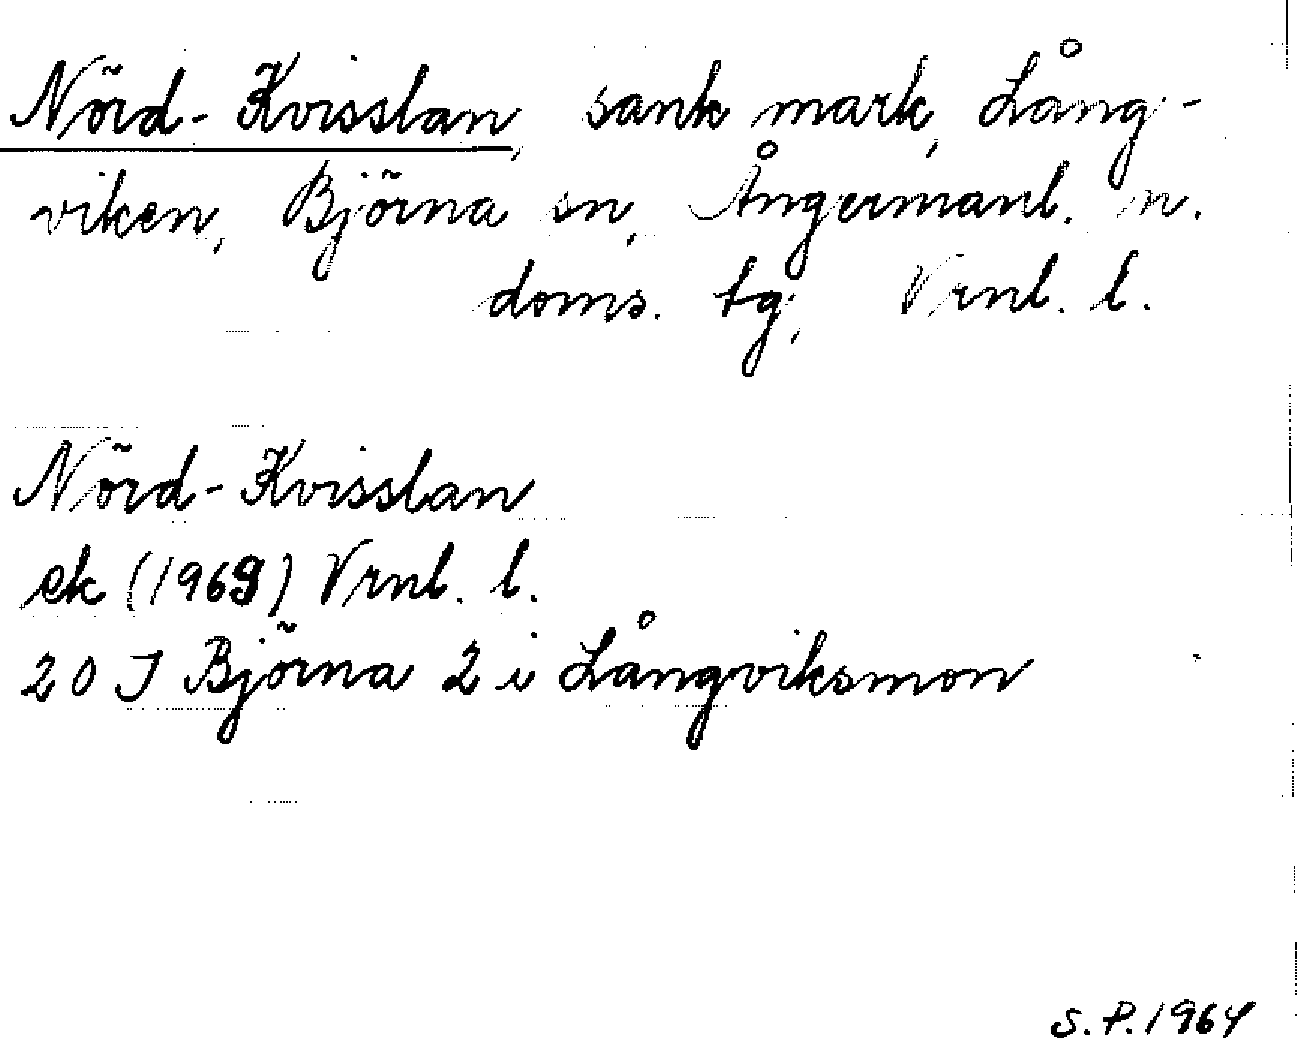 Nörd-Kvisslan, sank mark, Lång-
viken, Björna sn, Ångermanl. n.
doms. tg, Vrnl. l.
Nörd-Kvisslan
ek (1969) Vrnl. l.
20 J Björna 2 i Långviksmon
S.P. 1964